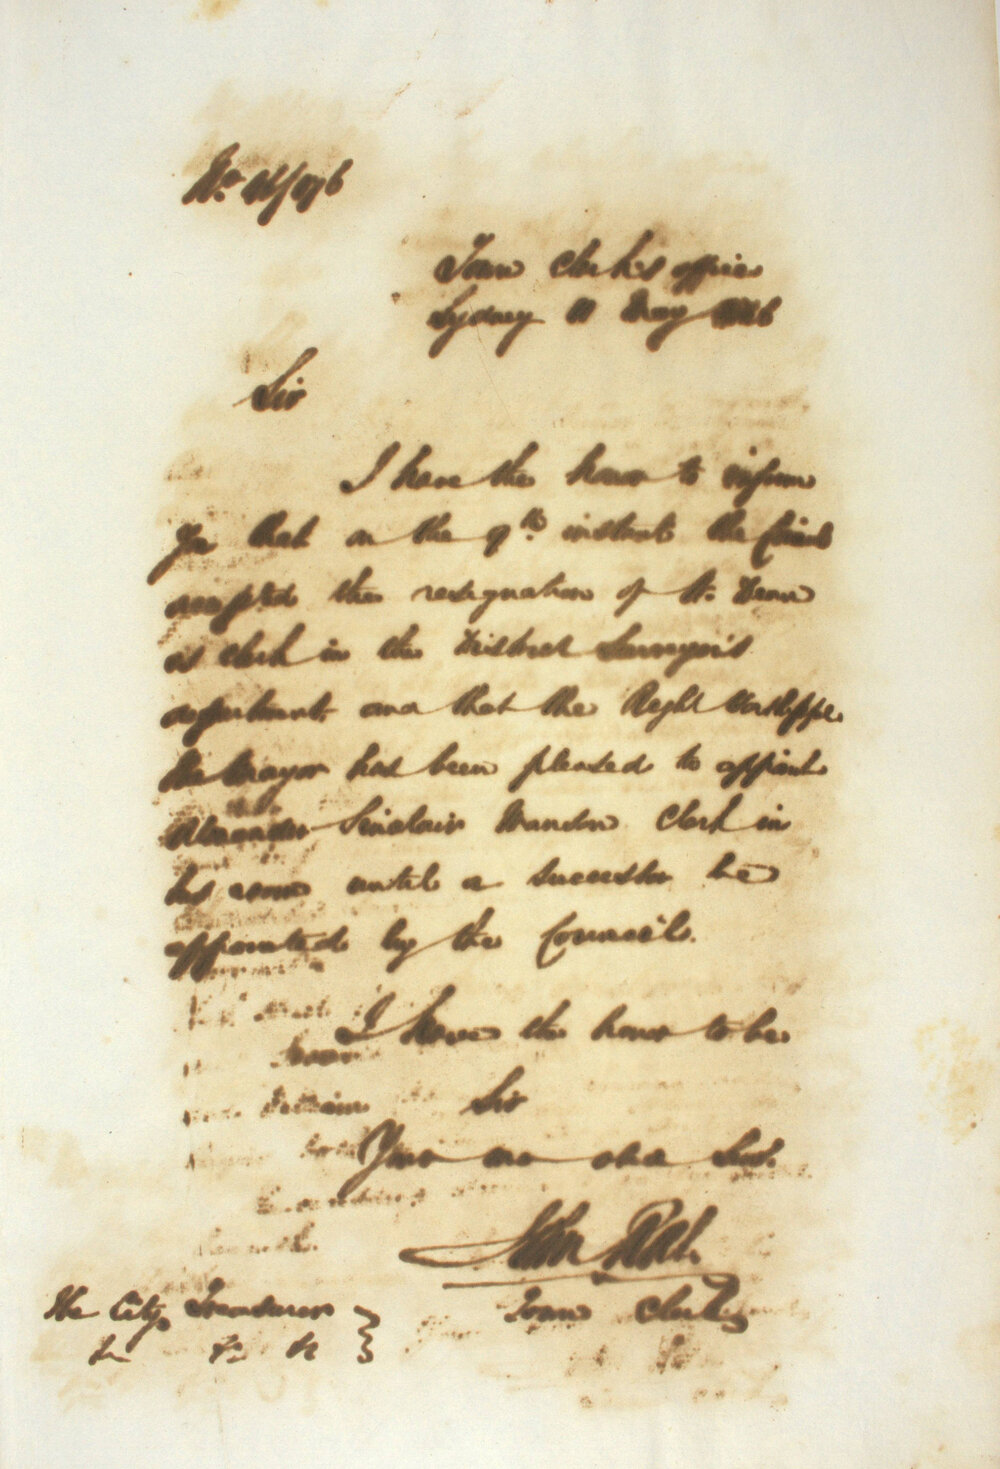 Town Clerk's office
Sydney 11 May
Sir
I have the honor to inform
you that on the 9th instant the Council
accepted the resignation of Mr.
as Clerk in the District Surveyor's
department and that the Right Worshipful
the Mayor has been pleased to appoint
Alexander Sinclair Clerk in
his room until a successor be
appointed by the Council.
I have the honor to be
Sir
Your obt Servt.
John Rae
Town Clerk
The City Treasurer
&c &c &c